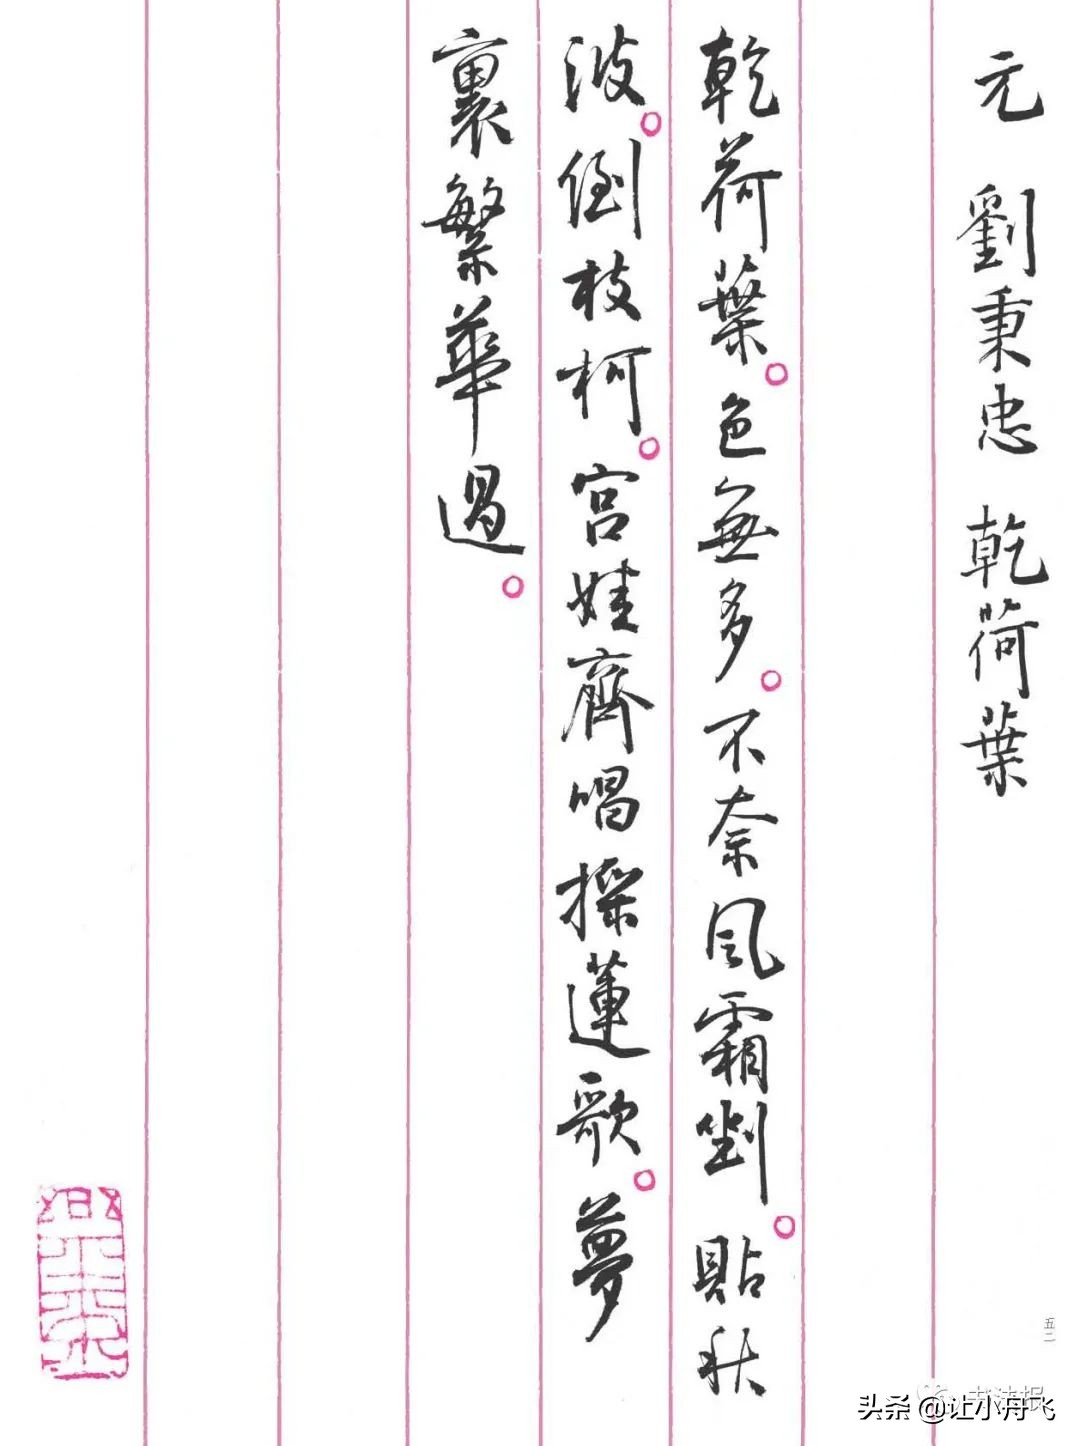 元 劉秉忠 乾荷葉
乾荷葉。色無多。不奈風霜剉。貼秋
波。倒枝柯。宮娃齊唱採蓮歌。夢
裏繁華過。
五二
书法报
头条 @让小舟飞